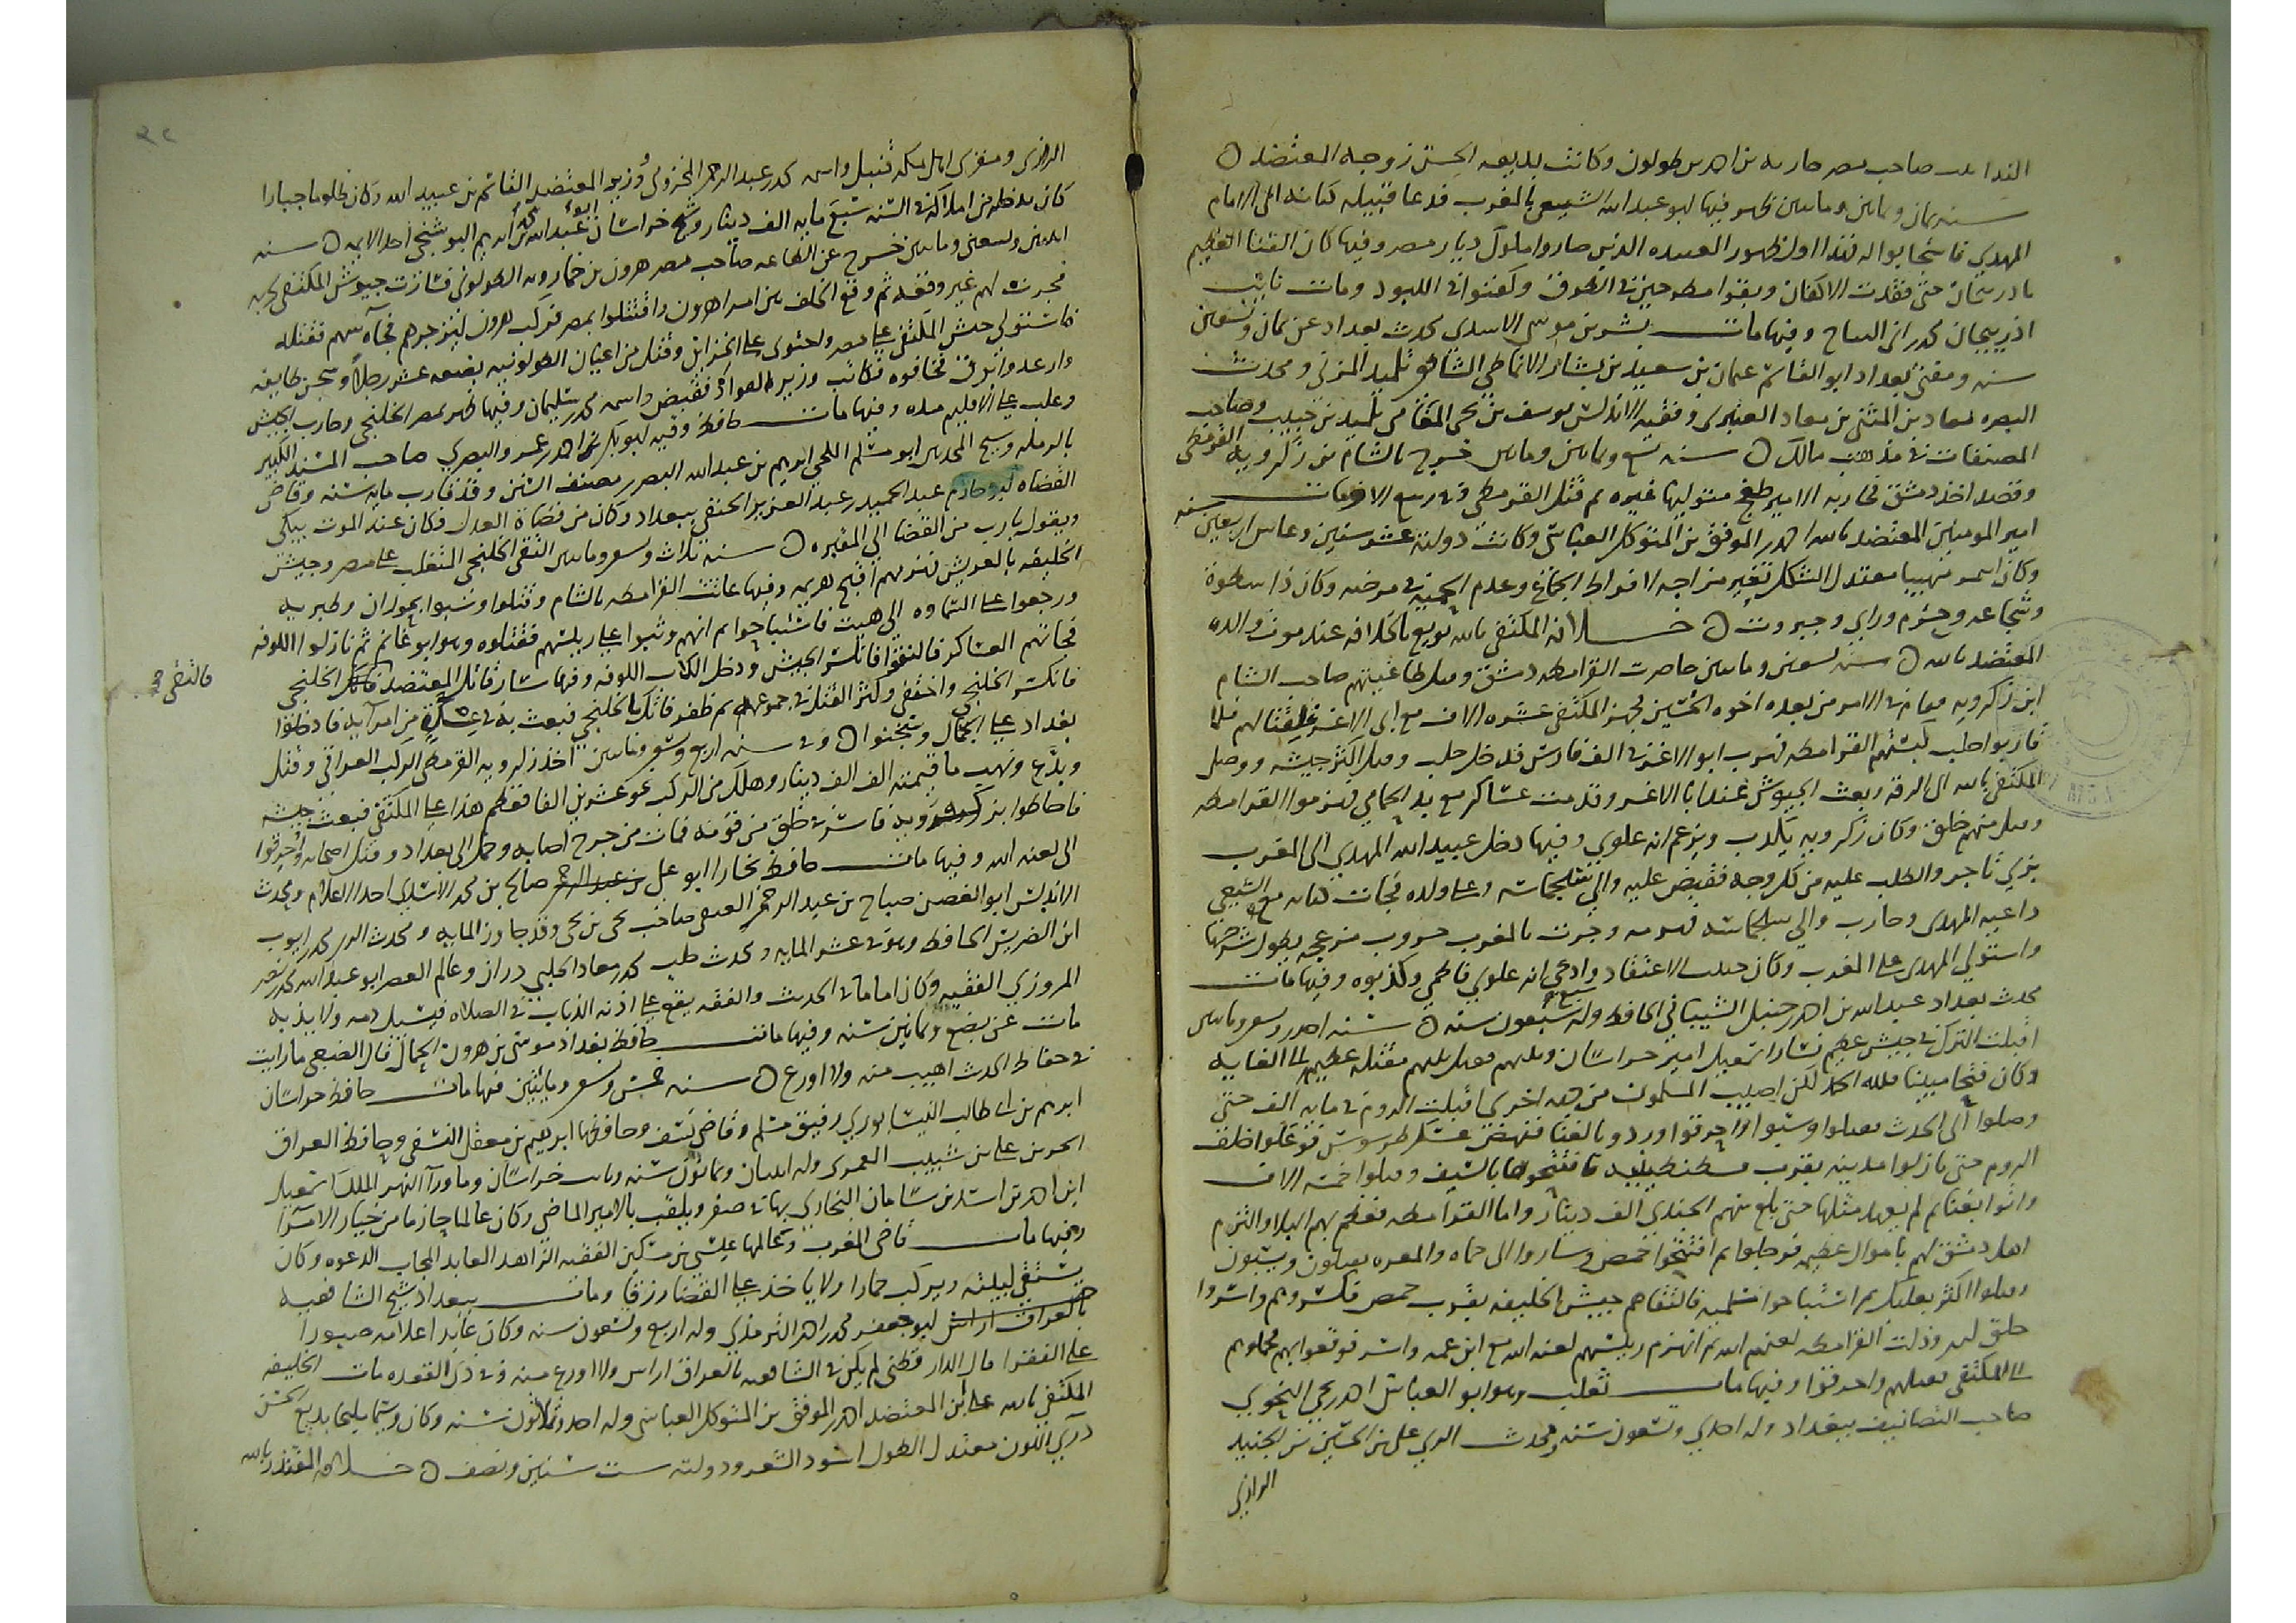 الندا بنت صاحب مصر خمارويه بن احمد بن طولون وكانت بديعه الحسن زوجه المعتضد ن
سنه ثمان وثمانين وماىىين ظهر فيها ابو عبد الله الشيعي بالمغرب فدعا قبيله كتامه الى الامام
المهدي فاستجابوا له فهذا اول ظهور العبيديه الذين صاروا ملوك ديار مصر وفيها كان الفنا العظيم
باذربيجان حتى فقدت الاكفان وبقوا مطروحين في الطرق وكفنوا في اللبود ومات نايب
اذربيجان محمد بن ابي الساج وفيها مات بشر بن موسى الاسدي محدث بغداد عن ثمان وتسعين
سنه ومفتي بغداد ابو القاسم عثمان بن سعيد بن بشار الانماطي الشافعي تلميذ المزني ومحدث
البصره معاذ بن المثنى بن معاذ العنبري وفقيه الاندلس يوسف بن يحيى المغامي تلميذ بن حبيب وصاحب
المصنفات في مذهب مالك ن سنه تسع وثمانين وماىىين خرج بالشام بن زكرويه القرمطي
وقصد اخذ دمشق فحاربه الامير طغج متوليها غيره ثم قتل القرمطي وفي ربيع الاخر مات
امير المومنين المعتضد بالله احمد بن الموفق بن المتوكل العباسي وكانت دولته عشر سنين وعاش اربعين سنه
وكان اسمر مهيبا معتدل الشكل تغير مزاجه لافراط الجماع وعدم الحميه في مرضه وكان ذا سطوة
وشجاعه وحزم وراي وجبروت ن خلافه المكتفي بالله بويع بالخلافه عند موت والده
المعتضد بالله ن سنه تسعين وماىىين حاصرت القرامطه دمشق وقتل طاغيتهم صاحب الشام
ابن زكرويه فقام في الامر من بعده اخوه الحسين فجهز المكتفي عشره الاف مع ابي الاغر لقتالهم فلما
قاربوا حلب كبستهم القرامطه فهرب ابو الاغر في الف فارس فدخل حلب وقتل اكثر جيشه ووصل
المكتفي بالله الى الرقه وبعث الجيوش عندا با الاغر وقدمت عساكر مع بدر الحمامي فهزموا القرامطه
وقتل منهم خلق وكان زكرويه يكذب ويزعم انه علوي وفيها دخل عبيد الله المهدي الى المغرب
بزي تاجر والطلب عليه من كل وجه فقبض عليه والي سجلماسه وعلى ولده فجات كتامه مع الشيعي
داعيه المهدي وحارب والي سجلماسه فهزمه وجرت بالمغرب حروب مزعجه يطول شرحها
واستولى المهدي على المغرب وكان خبيث الاعتقاد وادعى انه علوي فاطمي وكذبوه وفيها مات
محدث بغداد عبد الله بن احمد بن حنبل الشيباني الحافظ وله سبع وسبعون سنه ن سنه احدى وتسعين وماىىين
اقبلت الترك في جيش عظيم فسار اسمعيل امير خراسان وبيتهم فقتل منهم مقتله عظيمه الى الغايه
وكان فتحا مبينا فلله الحمد لكن اصيب المسلمون من جهه اخرى اقبلت الروم في مايه الف حتى
وصلوا الى الحدث فقتلوا وسبوا واحرقوا وردوا بالغنا فنهض عسكر طرسوس فوغلوا خلف
الروم حتى نازلوا مدينه بقرب قسطنطينيه فافتتحوها بالسيف وقتلوا خمسه الاف
واتوا بغنايم لم يعهد مثلها حتى بلغ سهم الجندي الف دينار واما القرامطه فعظم بهم البلا والتزم
اهل دمشق لهم باموال عظيمه فرحلوا ثم افتتحوا حمص وساروا الى حماه والمعره يقتلون ويسبون
وقتلوا اكثر بعلبك ثم استباحوا سلميه فالتقاهم جيش الخليفه بقرب حمص فكسروهم واسروا
خلق كثير وذلت القرامطه لعنهم الله ثم انهزم رييسهم لعنه الله مع ابن عمه واخر فوقعوا بهم فحملوهم
الى المكتفي فقتلهم واحرقوا وفيها مات ثعلب وهو ابو العباس احمد بن يحيى النحوي
صاحب التصانيف ببغداد وله احدى وتسعون سنه ومحدث الري علي بن الحسين بن الجنيد
الرازي
الرازي ومقري اهل مكه قنبل واسمه محمد بن عبد الرحمن المخزومي ووزير المعتضد القاسم بن عبيد الله وكان ظلوما جبارا
كان يدخله من املاكه في السنه سبع مايه الف دينار وشيخ خراسان ابو عبد الله محمد بن ابرهيم البوشنجي احد الايمه ن سنه
اثنين وتسعين وماىىين خرج عن الطاعه صاحب مصر هرون بن خمارويه الطولوني فسارت جيوش المكتفي لحربه
فجرت لهم غير وقعه ثم وقع الخلف بين امرا هرون واقتتلوا بمصر فركب هرون ليزجرهم فجآه سهم فقتله
فاستولى جيش المكتفي على مصر واحتوى على الخزاين وقتل من اعيان الطولونيه بضعه عشر رجلا وسجن طايفه
فخافوه فكاتب وزيره القواد فقبض واسمه محمد بن سليمان وفيها ظهر بمصر الخلنجي وحارب الجيش
وغلب على الاقليم مده وفيها مات حافظ وقته ابو بكر بن احمد بن عمرو البصري صاحب المسند الكبير
بالرمله وشيخ المحدثين ابو مسلم الكجي ابرهيم بن عبد الله البصري مصنف السنن وقد قارب مايه سنه وقاضي
القضاه ابو حازم عبد الحميد بن عبد العزيز الحنفي ببغداد وكان من قضاة العدل فكان عند الموت يبكي
ويقول يا رب من القضا الى المقبره ن سنه ثلاث وتسعين وماىىين التقى الخلنجي المتغلب على مصر وجيش
الخليفه بالعريش فهزمهم اقبح هزيمه وفيها عاثت القرامطه بالشام وقتلوا وسبوا بحوران وطبريه
ورجعوا على السماوه الى هيت فاستباحوا ثم انهم وثبوا على رييسهم فقتلوه وهو ابو غانم ثم نازلوا الكوفه
فجاتهم العساكر فالتقوا فانكسر الجيش ودخل الكلاب الكوفه وفيها سار فاتك المعتضدي فالتقى الخلنجي
فانكسر الخلنجي واختفى وكثر القتل في جموعهم ثم ظفر فاتك بالخلنجي فبعث به في عشره من امرآيه فادخلوا
بغداد على الجمال وسجنوا ن وفي سنه اربع وتسعين وماىىين اخذ زكرويه القرمطي الركب العراقي وقتل
وبدع ونهب ما قيمته الف الف دينار وهلك من الركب نحو عشرين الفا فعظم هذا على المكتفي فبعث جيشه
فاحاطوا بزكرويه فاسر في خلق من قومه فمات من جرح اصابه وحمل الى بغداد وقتل اصحابه واحرقوا
الى لعنه الله وفيها مات حافظ بخارا ابو علي صالح بن محمد الاسدي احد الاعلام ومحدث
الاندلس ابو الغصن صباح بن عبد الرحمن العتقي صاحب يحيى بن يحيى وقد جاوز المايه ومحدث الري محمد بن ايوب
ابن الضريس الحافظ وهو في عشر المايه ومحدث حلب محمد بن معاذ الحلبي دران وعالم العصر ابو عبد الله محمد بن نصر
المروزي الفقيه وكان اماما في الحديث والفقه يقع على اذنه الذباب في الصلاه فيسيل دمه ولا يذبه
مات عن بضع وثمانين سنه وفيها مات حافظ بغداد موسى بن هرون الحمال قال الضبعي ما رايت
في حفاظ الحديث اهيب منه ولا اورع ن سنه خمس وتسعين ومايتين فيها مات حافظ خراسان
ابرهيم بن ابي طالب النيسابوري رفيق مسلم وقاضي نسف وحافظها ابرهيم بن معقل النسفي وحافظ العراق
الحسن بن علي بن شبيب المعمري وله اثنان وثمانون سنه ونايب خراسان وما ورآ النهر الملك اسمعيل
ابن احمد بن اسد بن سامان البخاري بها في صفر ويلقب بالامير الماضي وكان عالما حازما من خيار الامرآ
وفيها مات قاضي المغرب وعالمها عيسى بن مسكين الفقيه الزاهد العابد المجاب الدعوه وكان
يستقي لبيته ويركب حمارا ولا ياخذ على القضا رزقا ومات ببغداد شيخ الشافعيه
بالعراق ابو جعفر محمد بن احمد الترمذي وله اربع وتسعون سنه وكان عابدا علامه صبورا
على الفقر قال الدارقطني لم يكن في الشافعيه بالعراق اراس ولا اورع منه وفي ذي القعده مات الخليفه
المكتفي بالله علي بن المعتضد احمد بن الموفق بن المتوكل العباسي وله احد وثلاثون سنه وكان وسيما مليحا بديع الحسن
دري اللون معتدل الطول اسود الشعر ودولته ست سنين ونصف ن خلافه المقتدر بالله
فالتقى